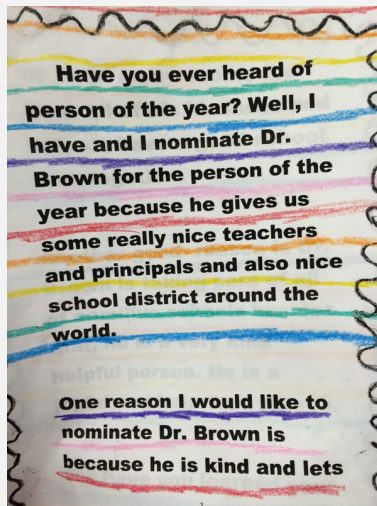 Have you ever heard of
person of the year? Well, I
have and I nominate Dr.
Brown for the person of the
year because he gives us
some really nice teachers
and principals and also nice
school district around the
world.
helpful person. He is a
One reason I would like to
nominate Dr. Brown is
because he is kind and lets